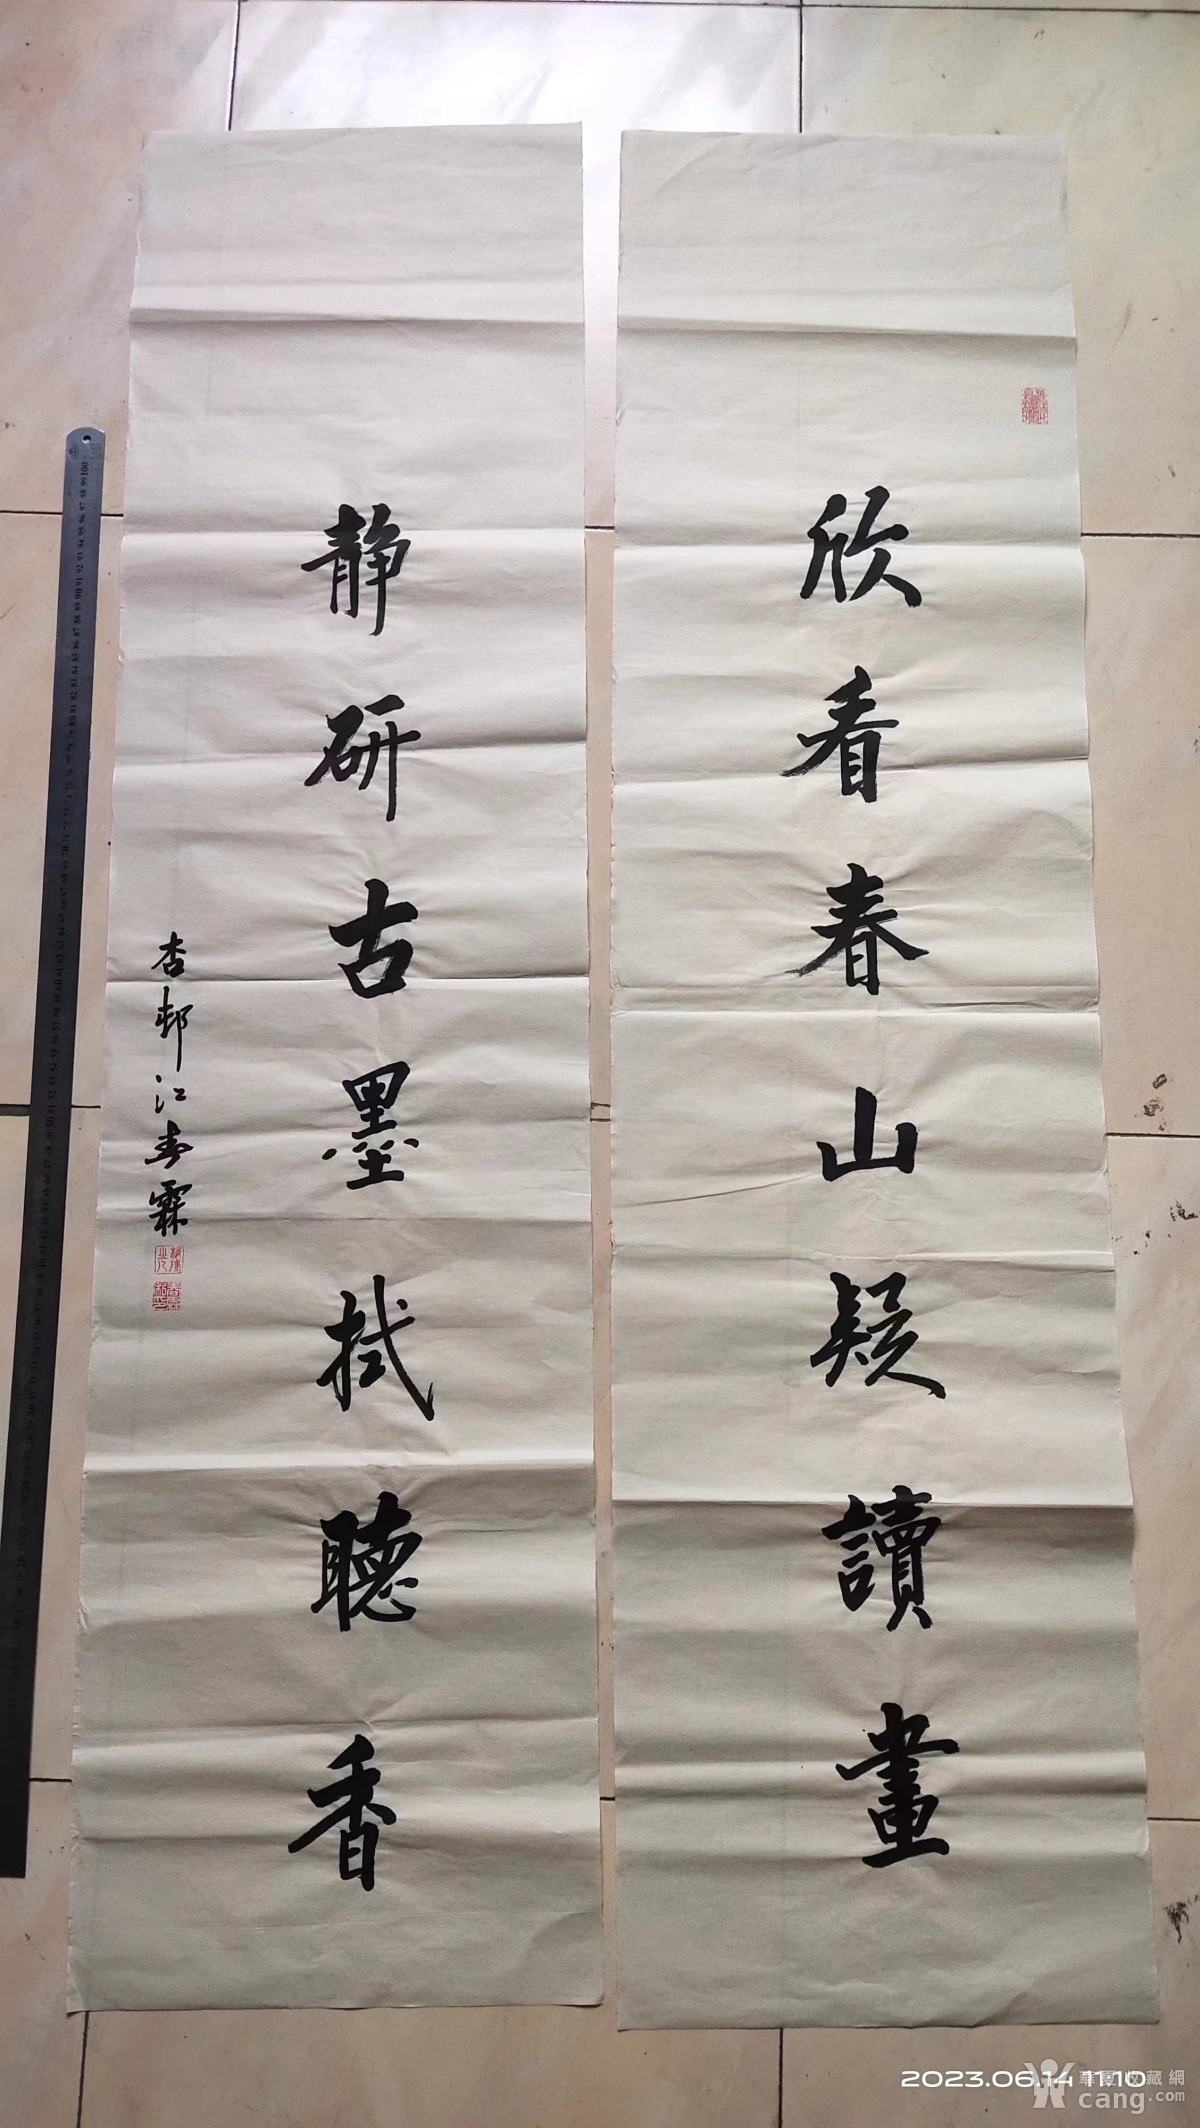 欣看春山疑讀畫
静研古墨拭聽香
杏邨江春霖
2023.06.14 11:10
華夏收藏網
cang.com